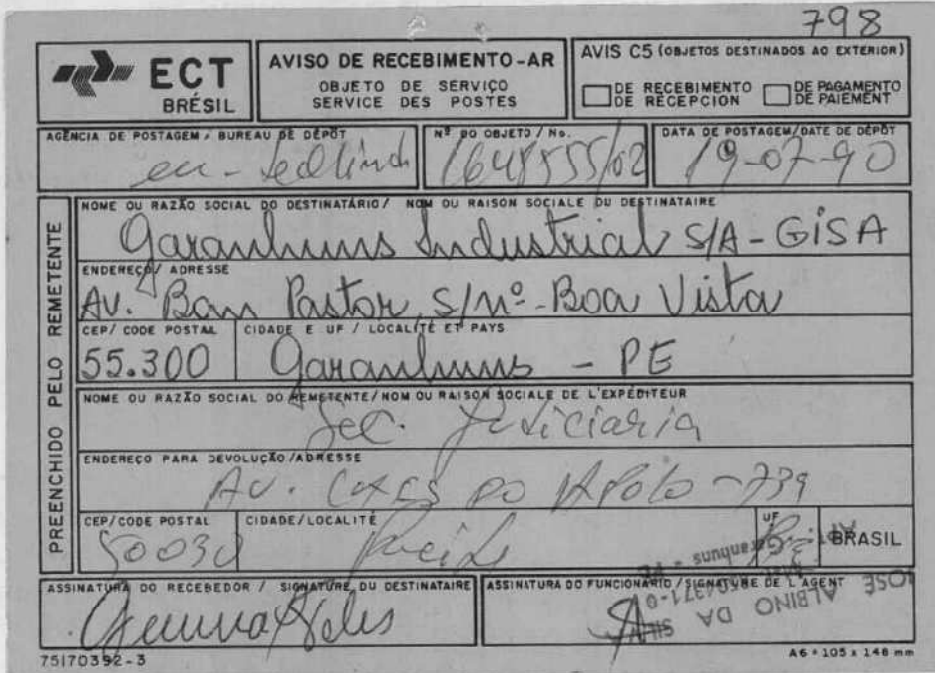 798
ECT
BRÉSIL
AVISO DE RECEBIMENTO-AR
OBJETO DE SERVIÇO
SERVICE DES POSTES
AVIS C5 (OBJETOS DESTINADOS AO EXTERIOR)
DE RECEBIMENTO
DE RÉCEPCION
DE PAGAMENTO
DE PAIEMENT
AGÊNCIA DE POSTAGEM / BUREAU DE DÉPÔT
Nº DO OBJETO / No.
1648555/02
DATA DE POSTAGEM/DATE DE DÉPÔT
19-07-90
PREENCHIDO PELO REMETENTE
NOME OU RAZÃO SOCIAL DO DESTINATÁRIO / NOM OU RAISON SOCIALE DU DESTINATAIRE
Garanhuns Industrial S/A - GISA
ENDEREÇO / ADRESSE
AV. Bom Pastor, S/Nº - Boa Vista
CEP/ CODE POSTAL
55.300
CIDADE E UF / LOCALITÉ ET PAYS
Garanhuns - PE
NOME OU RAZÃO SOCIAL DO REMETENTE/NOM OU RAISON SOCIALE DE L'EXPÉDITEUR
Sec. Judiciaria
ENDEREÇO PARA DEVOLUÇÃO/ADRESSE
AV. CAES DO APOLO - 739
CEP/CODE POSTAL
50030
CIDADE/LOCALITÉ
Recife
UF
PE
BRASIL
ASSINATURA DO RECEBEDOR / SIGNATURE DU DESTINATAIRE
ASSINTURA DO FUNCIONÁRIO / SIGNATURE DE L'AGENT
JOSÉ ALBINO DA SILVA
Garanhuns - PE
75170392-3
A6 * 105 x 148 mm